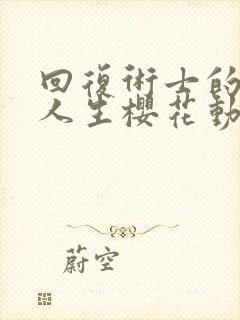 回復術士的
人生櫻花動
蔚空